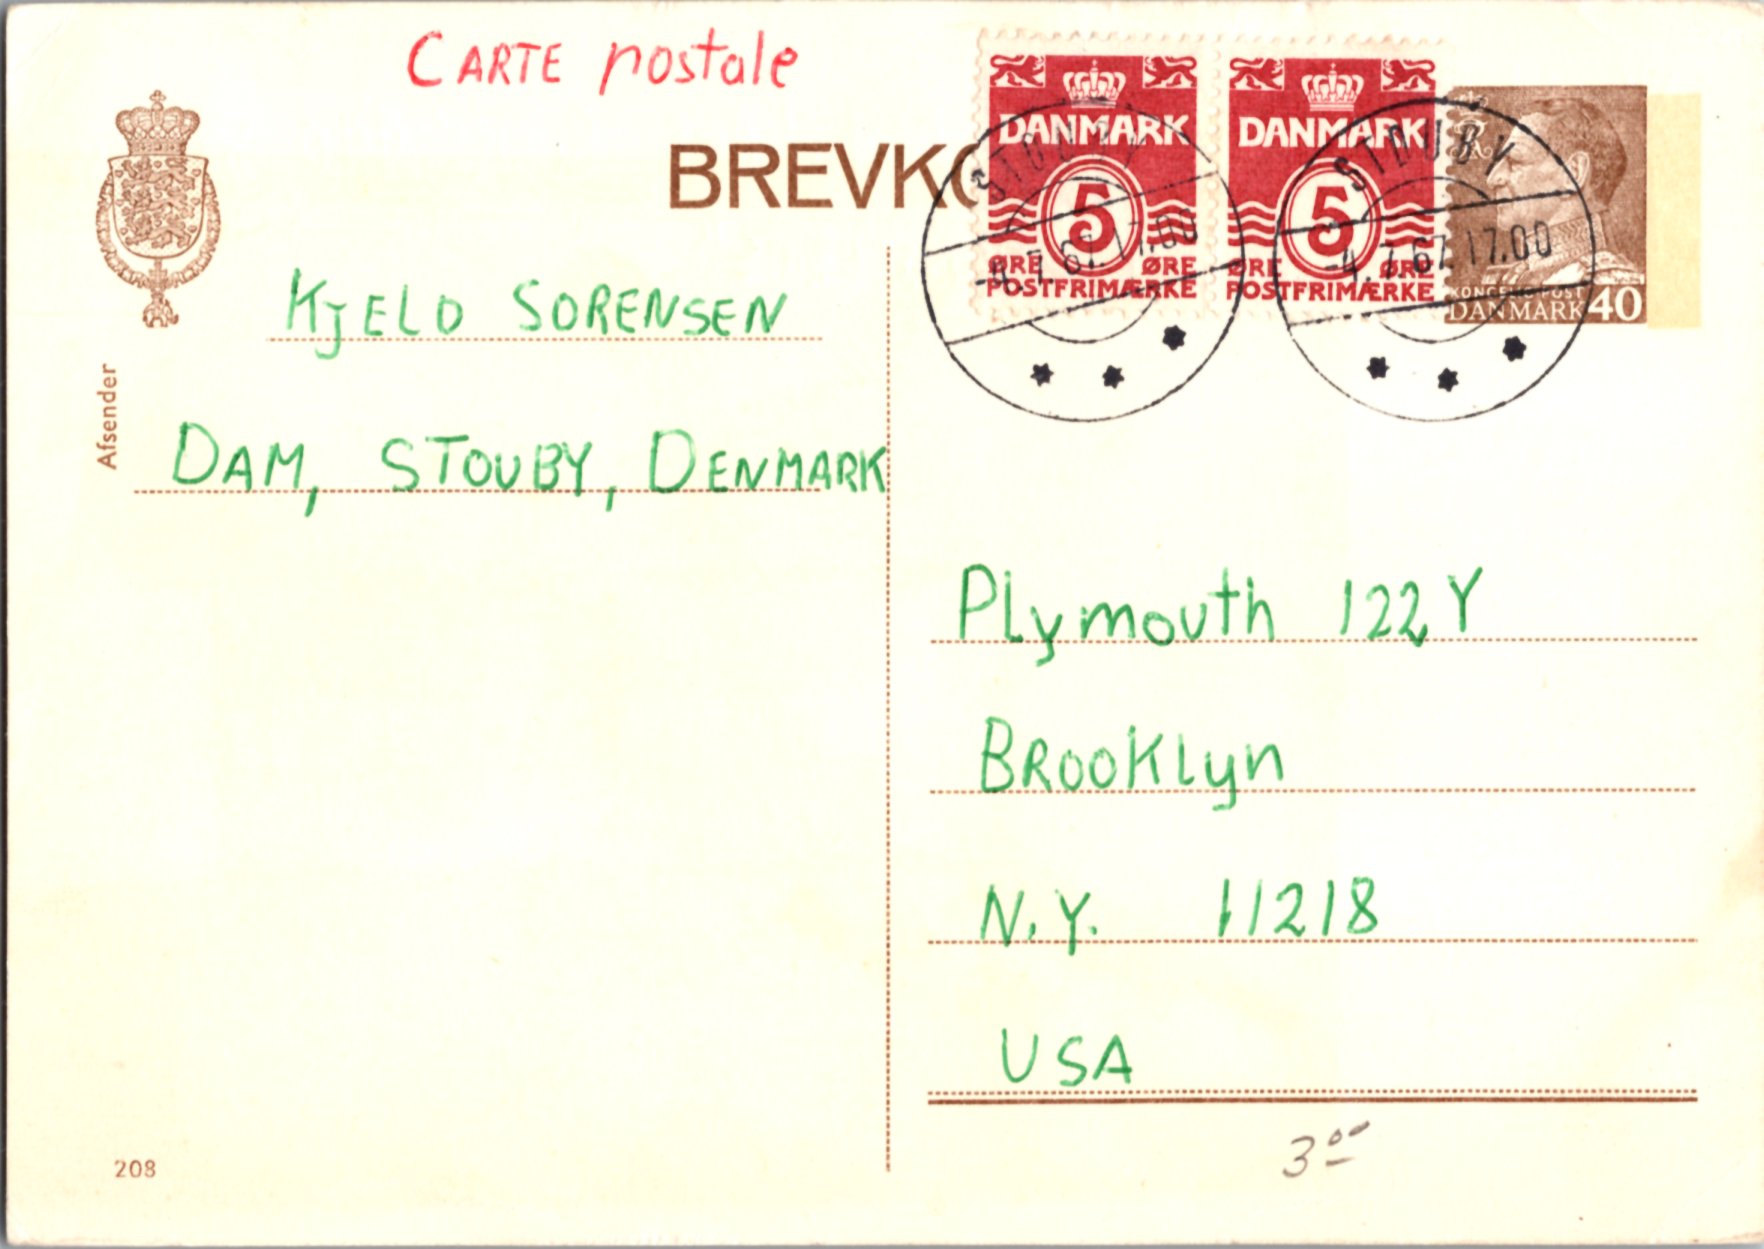 CARTE postale
BREVKO
DANMARK
5
ØRE ØRE
POSTFRIMÆRKE
DANMARK
5
ØRE ØRE
POSTFRIMÆRKE
KONGELIG POST
DANMARK 40
STOUBY
-4.7.67.17.00
STOUBY
-4.7.67.17.00
Afsender
KjELD SORENSEN
DAM, STOUBY, DENMARK
PLymouth 122Y
BROOKLyn
N.Y. 11218
USA
3 00
208